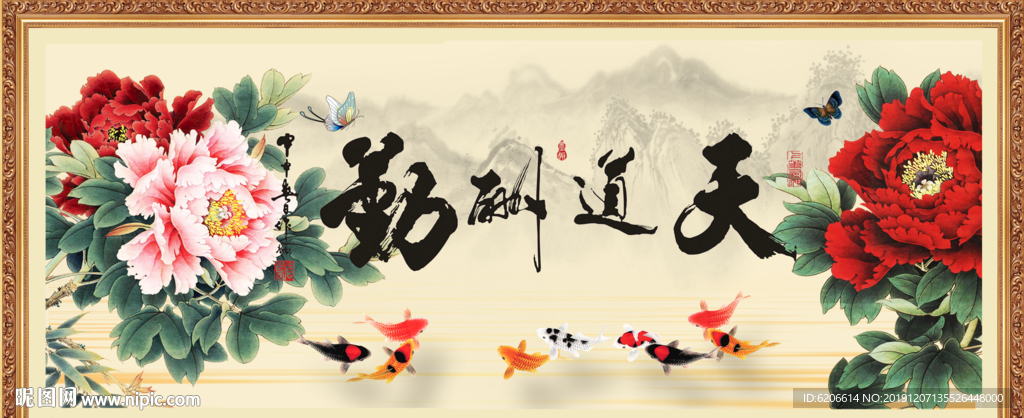 天道酬勤
昵图网 www.nipic.com
ID:6206614 NO:20191207135526448000